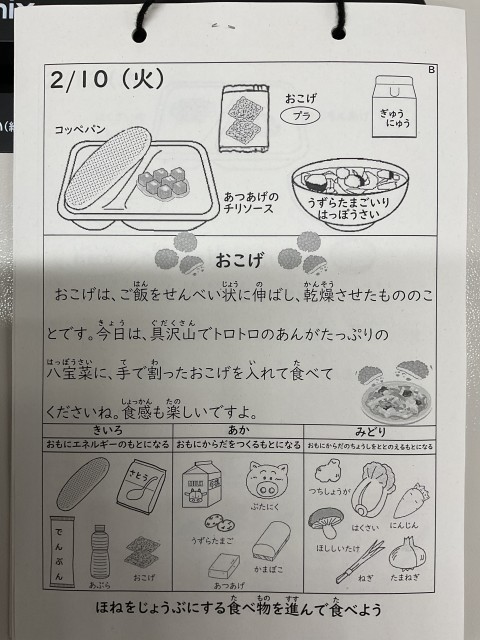 nix
B
2/10（火）
おこげ
プラ
ぎゅう
にゅう
コッペパン
あつあげの
チリソース
うずらたまごいり
はっぽうさい
おこげ
おこげは、ご飯をせんべい状に伸ばし、乾燥させたもののこ
とです。今日は、具沢山でトロトロのあんがたっぷりの
八宝菜に、手で割ったおこげを入れて食べて
くださいね。食感も楽しいですよ。
きいろ
あか
みどり
おもにエネルギーのもとになる
おもにからだをつくるもとになる
おもにからだのちょうしをととのえるもとになる
さとう
ぶたにく
つちしょうが
はくさい
にんじん
でんぷん
うずらたまご
かまぼこ
ほししいたけ
あぶら
おこげ
あつあげ
ねぎ
たまねぎ
ほねをじょうぶにする食べ物を進んで食べよう